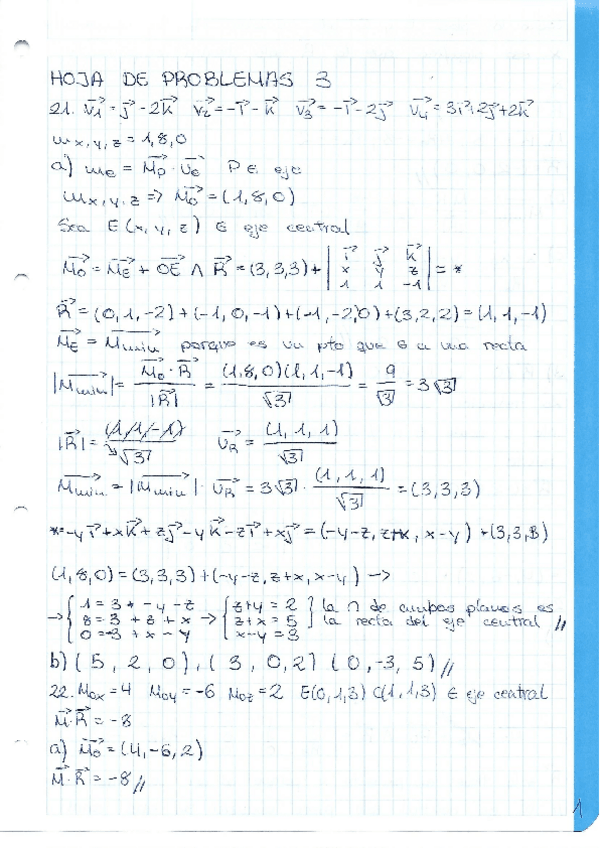 HOJA DE PROBLEMAS 3
21. v₁=j-2k v₂=-i-k v₃=-i-2j v₄=3i+2j+2k
m x,y,z = 1,8,0
a) me = Mp · ue P ∈ eje
m x,y,z => Mo = (1,8,0)
Sea E(x,y,z) ∈ eje central
Mo = ME + OE ∧ R = (3,3,3) + | i j k | = *
x y z
1 1 -1
R = (0,1,-2)+(-1,0,-1)+(-1,-2,0)+(3,2,2) = (1,1,-1)
ME = Mmin porque es un pto que ∈ a una recta
|Mmin| = Mo · R / |R| = (1,8,0)(1,1,-1) / √3 = 9/√3 = 3√3
|R| = (1,1,-1) / √3 uR = (1,1,1) / √3
Mmin = |Mmin| · uR = 3√3 · (1,1,1) / √3 = (3,3,3)
*=-yi+xk+zj-yk-zi+xj = (-y-z, z+x, x-y) + (3,3,3)
(1,8,0) = (3,3,3) + (-y-z, z+x, x-y) →
→ { 1=3+-y-z → { z+y=2 } la ∩ de ambos planos es
8=3+z+x z+x=5 la recta del eje central //
0=3+x-y x-y=3
b) (5, 2, 0), (3, 0, 2) (0, -3, 5) //
22. Mox=4 Moy=-6 Moz=2 E(0,1,3) C(1,1,3) ∈ eje central
M·R = -8
a) Mo = (4,-6,2)
M·R = -8 //
1